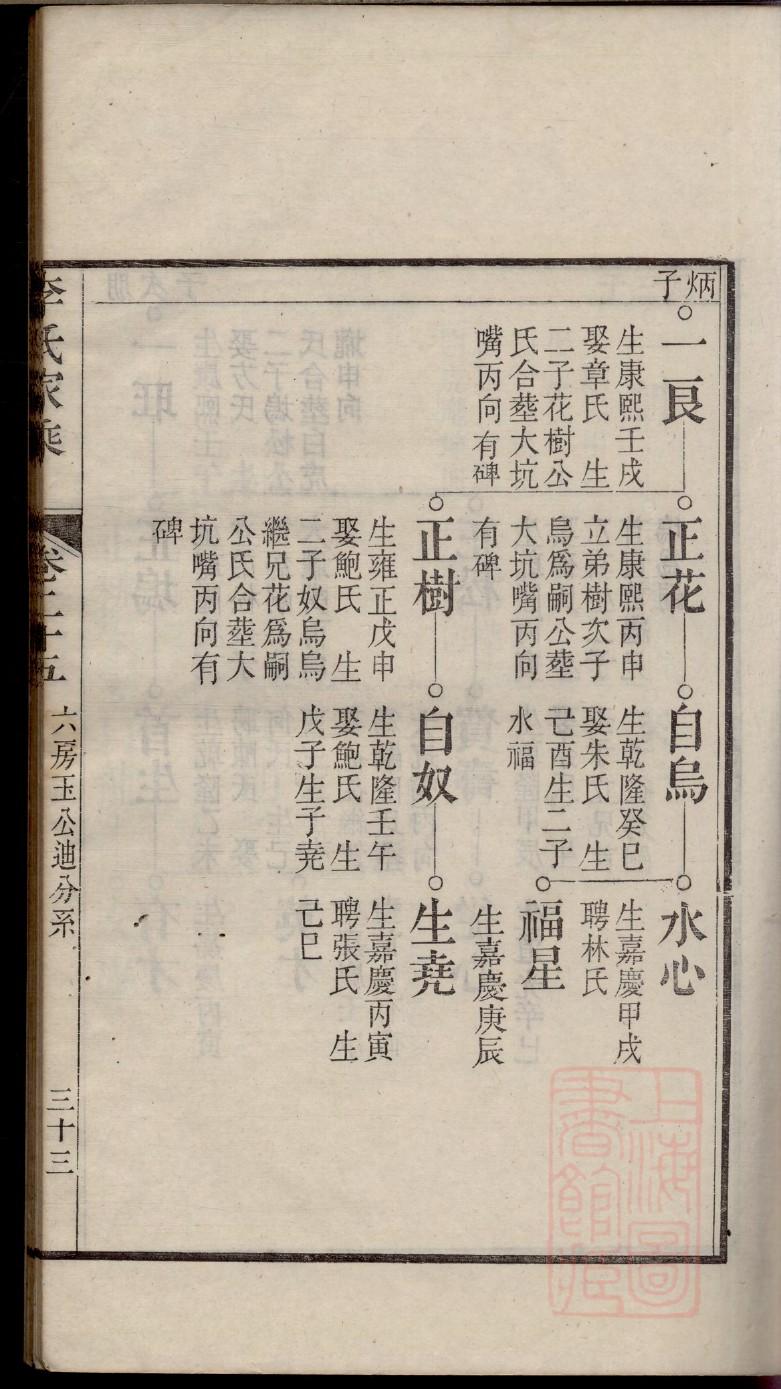 炳子
一良
生康熙壬戌
娶章氏　生
二子花樹公
氏合塟大坑
嘴丙向有碑
正花
生康熙丙申
立弟樹次子
烏爲嗣公塟
大坑嘴丙向
有碑
自烏
生乾隆癸巳
娶朱氏　生
己酉生二子
水福
水心
生嘉慶甲戌
聘林氏
福星
生嘉慶庚辰
正樹
生雍正戊申
娶鮑氏　生
二子奴烏烏
繼兄花爲嗣
公氏合塟大
坑嘴丙向有
碑
自奴
生乾隆壬午
娶鮑氏　生
戊子生子堯
生堯
生嘉慶丙寅
聘張氏　生
己巳
李氏家乘
卷二十五
六房玉公迪分系
三十三
上海圖書館藏